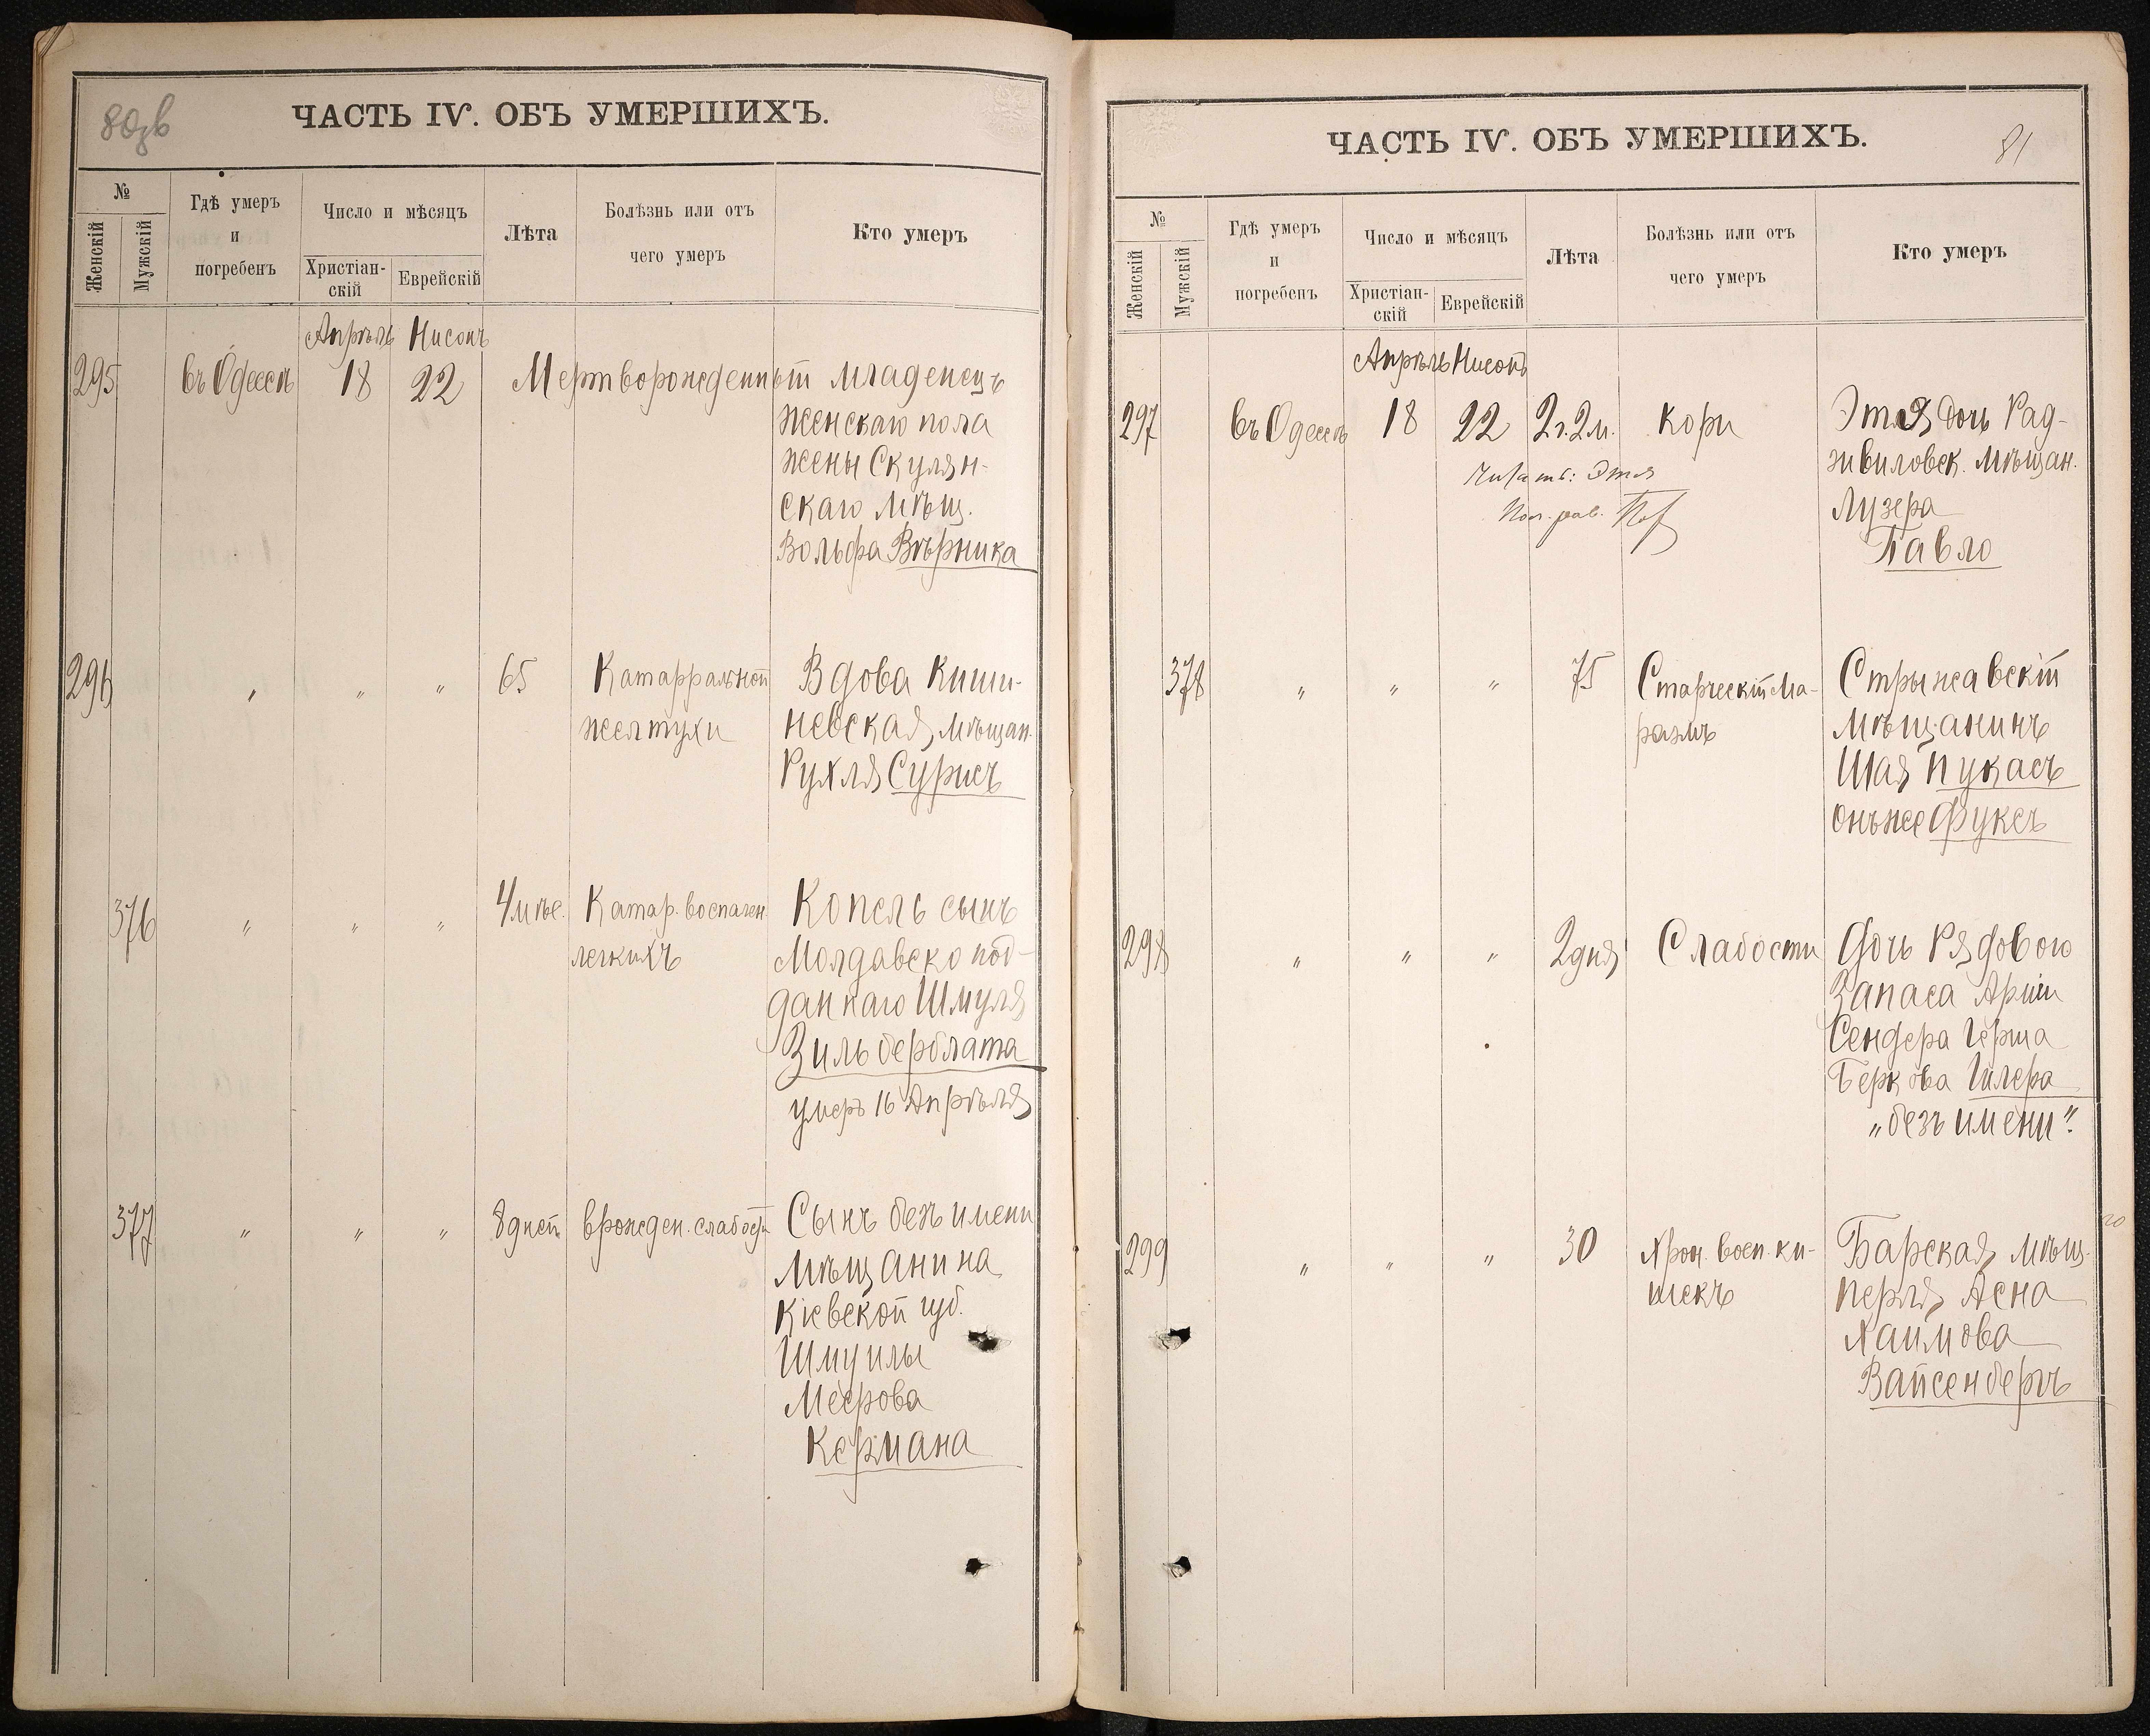 80зв
ЧАСТЬ IV. ОБЪ УМЕРШИХЪ.
№
Женскій
Мужскій
Гдѣ умеръ
и
погребенъ
Число и мѣсяцъ
Христіан-
скій
Еврейскій
Лѣта
Болѣзнь или отъ
чего умеръ
Кто умеръ
Апрѣль Нисонъ
295 въ Одессѣ 18 22 Мертворожденный младенецъ
женскаго пола
жены Скулян-
скаго мѣщ.
Вольфа Вѣрника
296 „ „ „ 65 Катарральной Вдова Киши-
желтухи невская мѣщан.
Рухля Сурисъ
376 „ „ „ 4 мѣс. Катар. воспален. Копель сынъ
легкихъ Молдавско под-
даннаго Шмуля
Зильберблата
умеръ 16 Апрѣля
377 „ „ „ 8 дней врожден. слабости Сынъ безъ имени
мѣщанина
Кіевской губ.
Шмуилы
Меерова
Кермана
81
ЧАСТЬ IV. ОБЪ УМЕРШИХЪ.
№
Женскій
Мужскій
Гдѣ умеръ
и
погребенъ
Число и мѣсяцъ
Христіан-
скій
Еврейскій
Лѣта
Болѣзнь или отъ
чего умеръ
Кто умеръ
Апрѣль Нисонъ
297 въ Одессѣ 18 22 2г. 2м. Кори Этля дочь Рад-
зивиловск. мѣщан.
Читать: Этля
Лузера
Пом. рав.
Павло
378 „ „ „ 75 Старческій ма- Стрыжавскій
размъ мѣщанинъ
Шая Пукасъ
онъ же Фуксъ
298 „ „ „ 2 дня Слабости Дочь Рядового
Запаса Арміи
Сендера Герша
Беркова Гилера
„безъ имени“.
299 „ „ „ 30 Хрон. восп. ки- Барская мѣщ.
шекъ Перля Асна
Хаимова
Вайсенбергъ